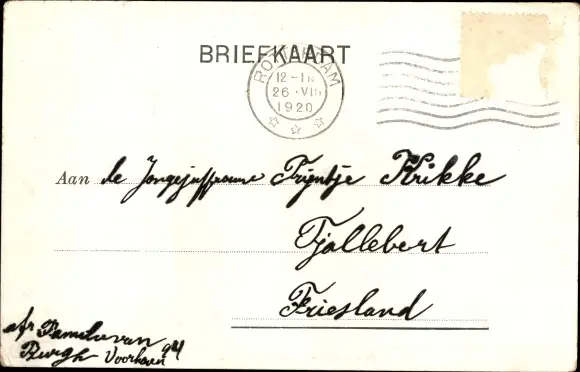 BRIEFKAART
ROTTERDAM
12-1N
26 · VII
1920
Aan de Jongejuffrouw Trijntje Krikke
Tjallebert
Friesland
afz Familie van
Burgh Voorhaven 94